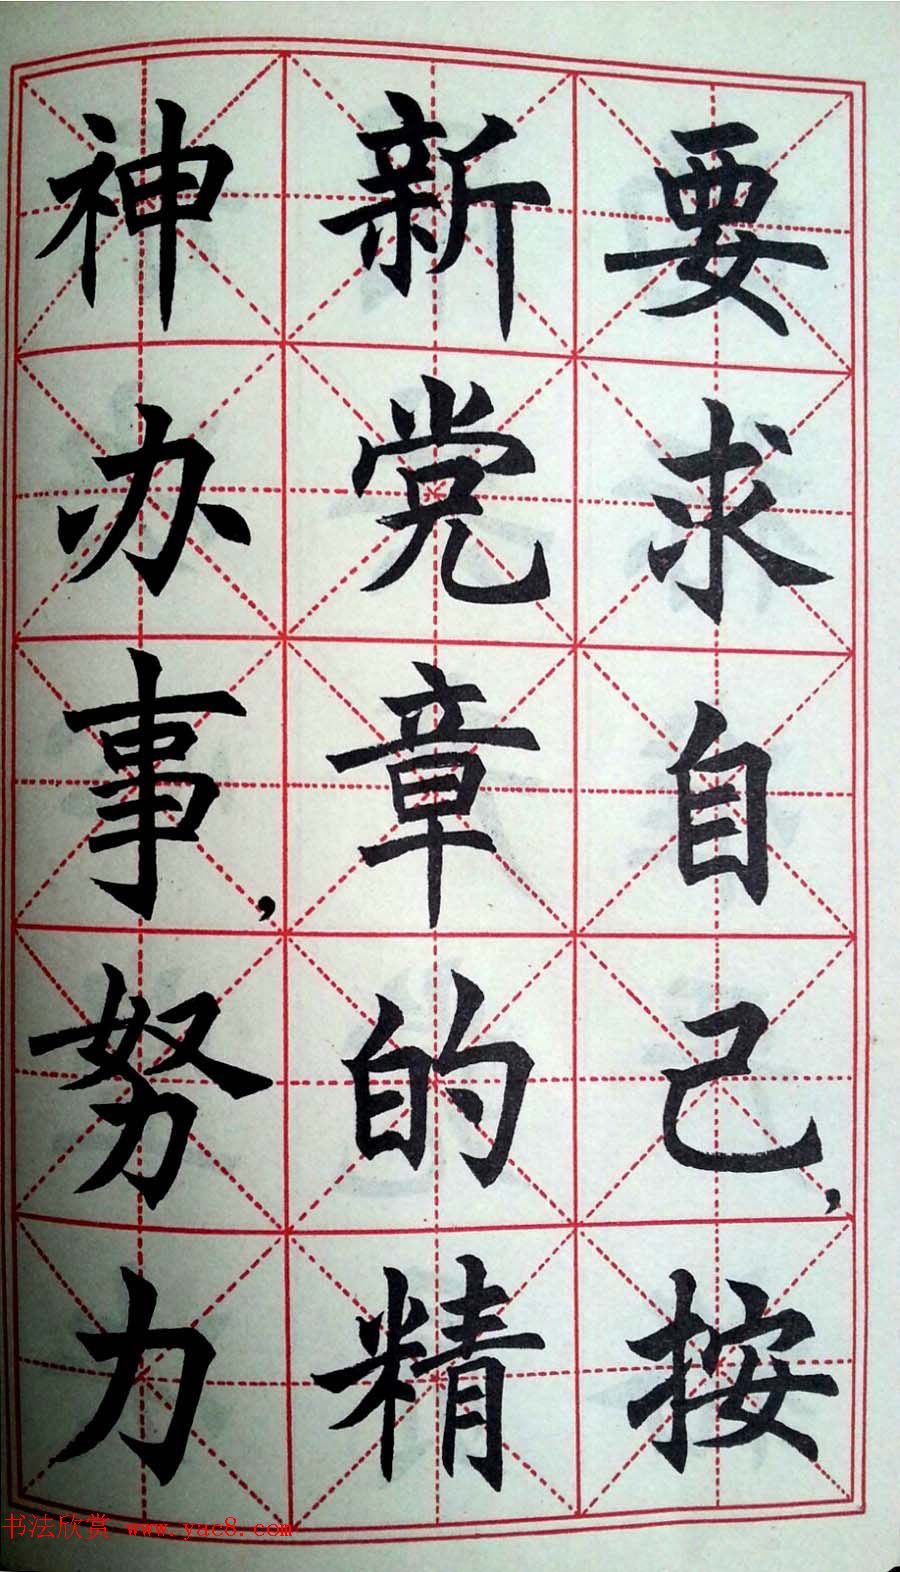 要求自己，按
新党章的精
神办事，努力
书法欣赏 www.yac8.com